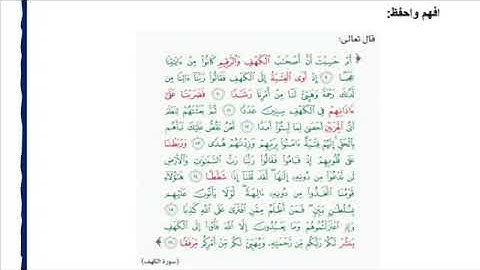 افهم واحفظ:
قال تعالى:
﴿ أَمْ حَسِبْتَ أَنَّ أَصْحَٰبَ ٱلْكَهْفِ وَٱلرَّقِيمِ كَانُوا۟ مِنْ ءَايَٰتِنَا
عَجَبًا ٩ إِذْ أَوَى ٱلْفِتْيَةُ إِلَى ٱلْكَهْفِ فَقَالُوا۟ رَبَّنَآ ءَاتِنَا مِن
لَّدُنكَ رَحْمَةً وَهَيِّئْ لَنَا مِنْ أَمْرِنَا رَشَدًا ١٠ فَضَرَبْنَا عَلَىٰٓ
ءَاذَانِهِمْ فِى ٱلْكَهْفِ سِنِينَ عَدَدًا ١١ ثُمَّ بَعَثْنَٰهُمْ لِنَعْلَمَ
أَىُّ ٱلْحِزْبَيْنِ أَحْصَىٰ لِمَا لَبِثُوٓا۟ أَمَدًا ١٢ نَّحْنُ نَقُصُّ عَلَيْكَ نَبَأَهُم
بِٱلْحَقِّ إِنَّهُمْ فِتْيَةٌ ءَامَنُوا۟ بِرَبِّهِمْ وَزِدْنَٰهُمْ هُدًى ١٣ وَرَبَطْنَا
عَلَىٰ قُلُوبِهِمْ إِذْ قَامُوا۟ فَقَالُوا۟ رَبُّنَا رَبُّ ٱلسَّمَٰوَٰتِ وَٱلْأَرْضِ
لَن نَّدْعُوَا۟ مِن دُونِهِۦٓ إِلَٰهًا لَّقَدْ قُلْنَآ إِذًا شَطَطًا ١٤ هَٰٓؤُلَآءِ
قَوْمُنَا ٱتَّخَذُوا۟ مِن دُونِهِۦٓ ءَالِهَةً لَّوْلَا يَأْتُونَ عَلَيْهِم
بِسُلْطَٰنٍۭ بَيِّنٍ فَمَنْ أَظْلَمُ مِمَّنِ ٱفْتَرَىٰ عَلَى ٱللَّهِ كَذِبًا ١٥
وَإِذِ ٱعْتَزَلْتُمُوهُمْ وَمَا يَعْبُدُونَ إِلَّا ٱللَّهَ فَأْوُۥٓا۟ إِلَى ٱلْكَهْفِ
يَنشُرْ لَكُمْ رَبُّكُم مِّن رَّحْمَتِهِۦ وَيُهَيِّئْ لَكُم مِّنْ أَمْرِكُم مِّرْفَقًا ١٦ ﴾
(سورة الكهف)